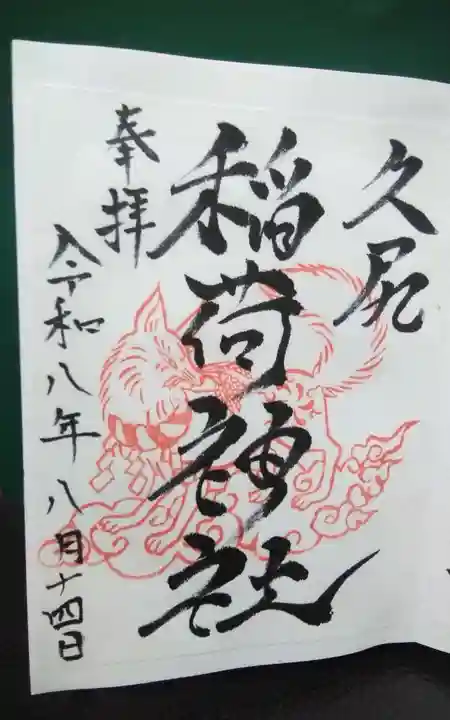 久尻
稲荷神社
奉拝
令和八年八月十四日